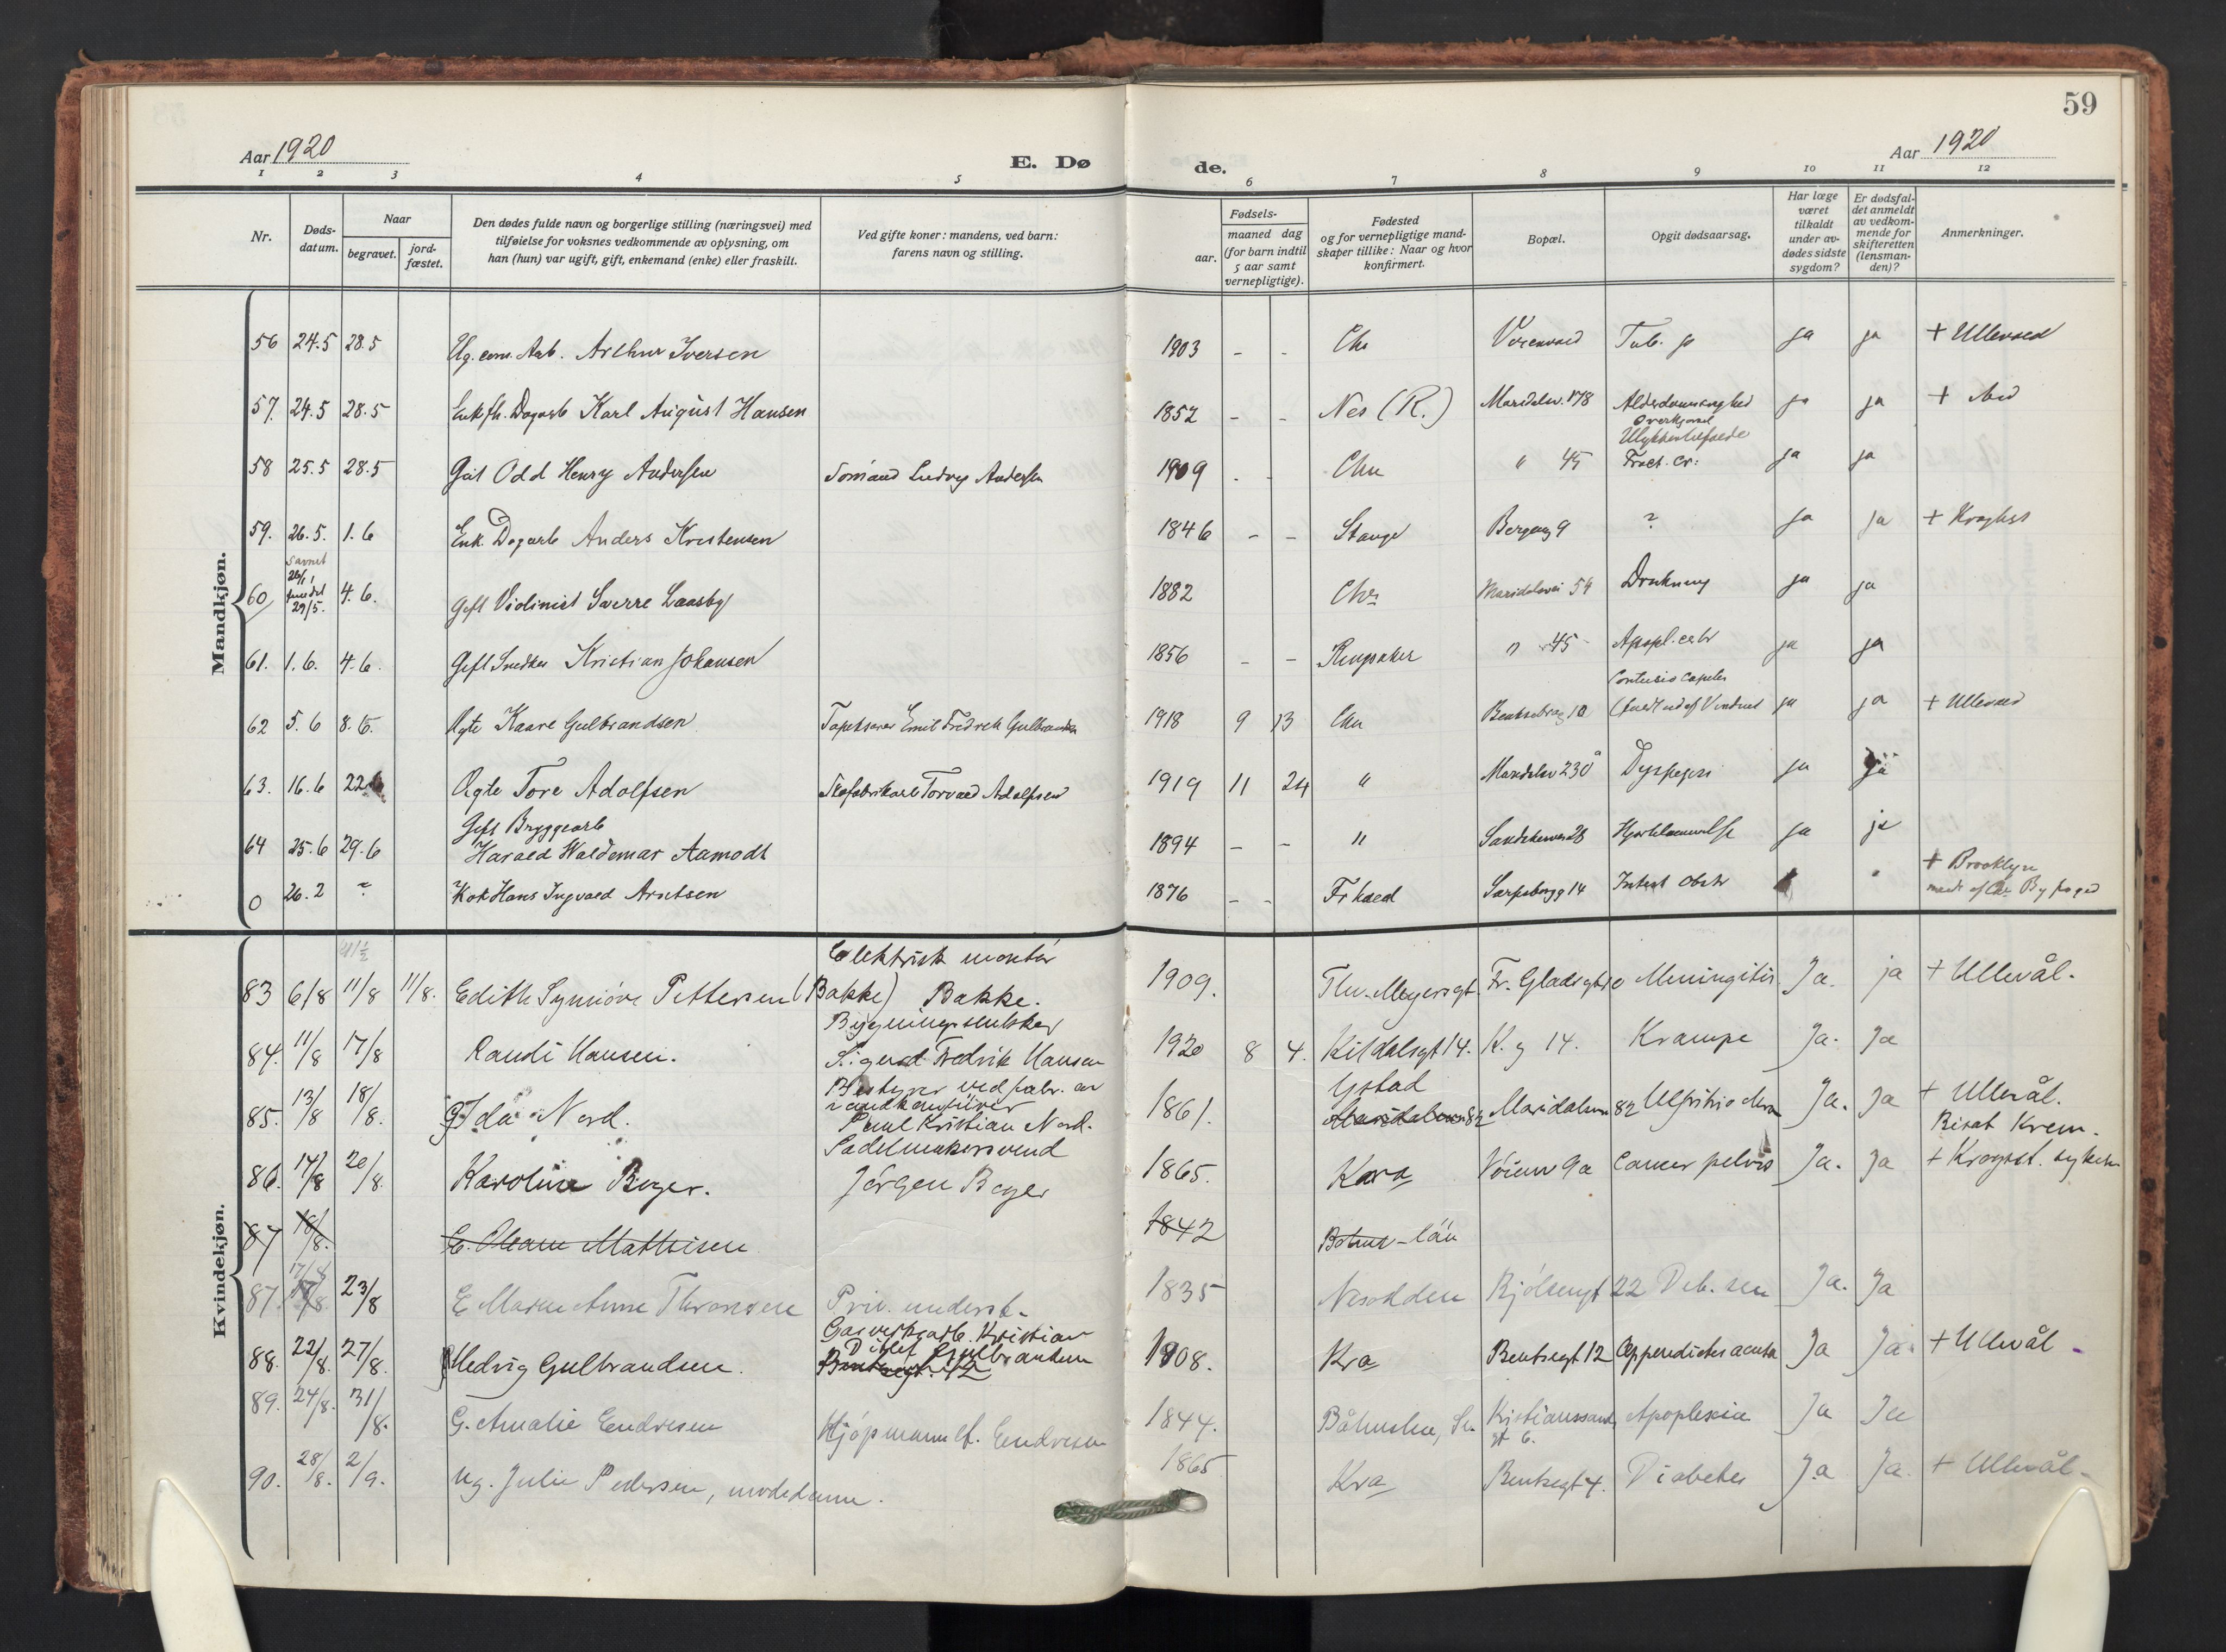 59
Aar 1920
E. Dø
de.
Aar 1920
1 2 3 4 5 6 7 8 9 10 11 12
Nr.
Døds-
datum.
Naar
begravet.
jord-
fæstet.
Den dødes fulde navn og borgerlige stilling (næringsvei) med
tilføielse for voksnes vedkommende av oplysning, om
han (hun) var ugift, gift, enkemand (enke) eller fraskilt.
Ved gifte koner: mandens, ved barn:
farens navn og stilling.
Fødsels-
aar.
maaned dag
(for barn indtil
5 aar samt
vernepligtige).
Fødested
og for vernepligtige mand-
skaper tillike: Naar og hvor
konfirmert.
Bopæl.
Opgit dødsaarsag.
Har læge
været
tilkaldt
under av-
dødes sidste
sygdom?
Er dødsfal-
det anmeldt
av vedkom-
mende for
skifteretten
(lensman-
den)?
Anmerkninger.
Mandkjøn.
56 24.5 28.5 Ug. Arb. Arthur Iversen 1903 - - Chr ja ja + Ullevaal
57. 24.5 28.5 Karl August Hansen 1852 - - Nes (R.) Maridalsv. 178 ja ja +
58 25.5 28.5 Gut Odd Henry Andersen Sømand Ludvig Andersen 1909 - - Chr " 45 Fract. cr: ja ja
59. 26.5. 1.6 Enk. Dagarb Anders Kristensen 1846 - - Stange Bergsg 9 ? ja ja +
60 savnet 26/1 fundet 29/5. 4.6. Gift Violinist Sverre Laasby 1882 Chr Maridalsvei 54 Drukning ja ja
61. 1.6. 4.6. Gift Snedker Kristian Johansen 1856 - - Ringsaker " 45 Apopl. cerbr ja ja
62 5.6 8.6. Ugte Kaare Gulbrandsen Tapetserer Emil Fredrik Gulbrandsen 1918 9 13 Chr 10 Contusio capitis ja ja + Ullevaal
63. 16.6 22.6 Ægte Tore Adolfsen Torvald Adolfsen 1919 11 24 " Maridalsv 230 Dyspepsi ja ja
64 25.6 29.6 Gift Bryggearb
Harald Waldemar Aamodt 1894 - - " 28 Hjertelammelse ja ja
0 26.2 ? Kok Hans Ingvald Arntsen 1876 - - Fr hald Sarpsborgg 14 Obstr + Brooklyn
Kvindekjøn.
83 6/8 11/8 11/8. Edith Synnöve Pettersen (Bakke) Elektrisk montör
Bakke. 1909. Thv. Meyersgt. Fr. Gladsgt Meningitis. Ja. ja + Ullevål.
84. 11/8 17/8 Randi Hansen. Bygningssnekker
Sigurd Fredrik Hansen 1920 8 4. Kildalsgt 14. K. g 14. Krampe Ja. Ja
85. 13/8 18/8. G Ida Nord. Bestyrer ved fabr. av
Paul Kristian Nord. 1861. Ystad
Maridalsvn 82 Maridalsvn 82 Ja. Ja + Ullevål.
Bisat Krem.
86. 14/8 20/8. Karoline Boger. Sadelmakersvend
Jörgen Boger 1865. Kra Vöienv 9a Cancer pelvis Ja. Ja +
87 18/8. E. Oleane Mathisen 1842 Bohus-län
87. 17/8 23/8 E Maren Anne Thoresen Priv. underst. 1835 Nesodden Bjölsengt 22 Deb. sen Ja. Ja
88. 22/8. 27/8. Hedvig Gulbrandsen. Gasverksarb. Kristian
Ditlef Gulbrandsen
Bentsegt. 12 1908. Kra Bentsegt 12 Appendicites acuta Ja Ja. + Ullevål
89. 24/8. 31/8. G. Amalie Endresen Kjöpmann Endresen 1844. Båhuslen, Kristianssands
gt 6. Apoplexia Ja Ja
90. 28/8. 2/9. Ug. Julie Pedersen, 1865 Kra Bentsegt 4. Diabetes Ja Ja. + Ullevål.